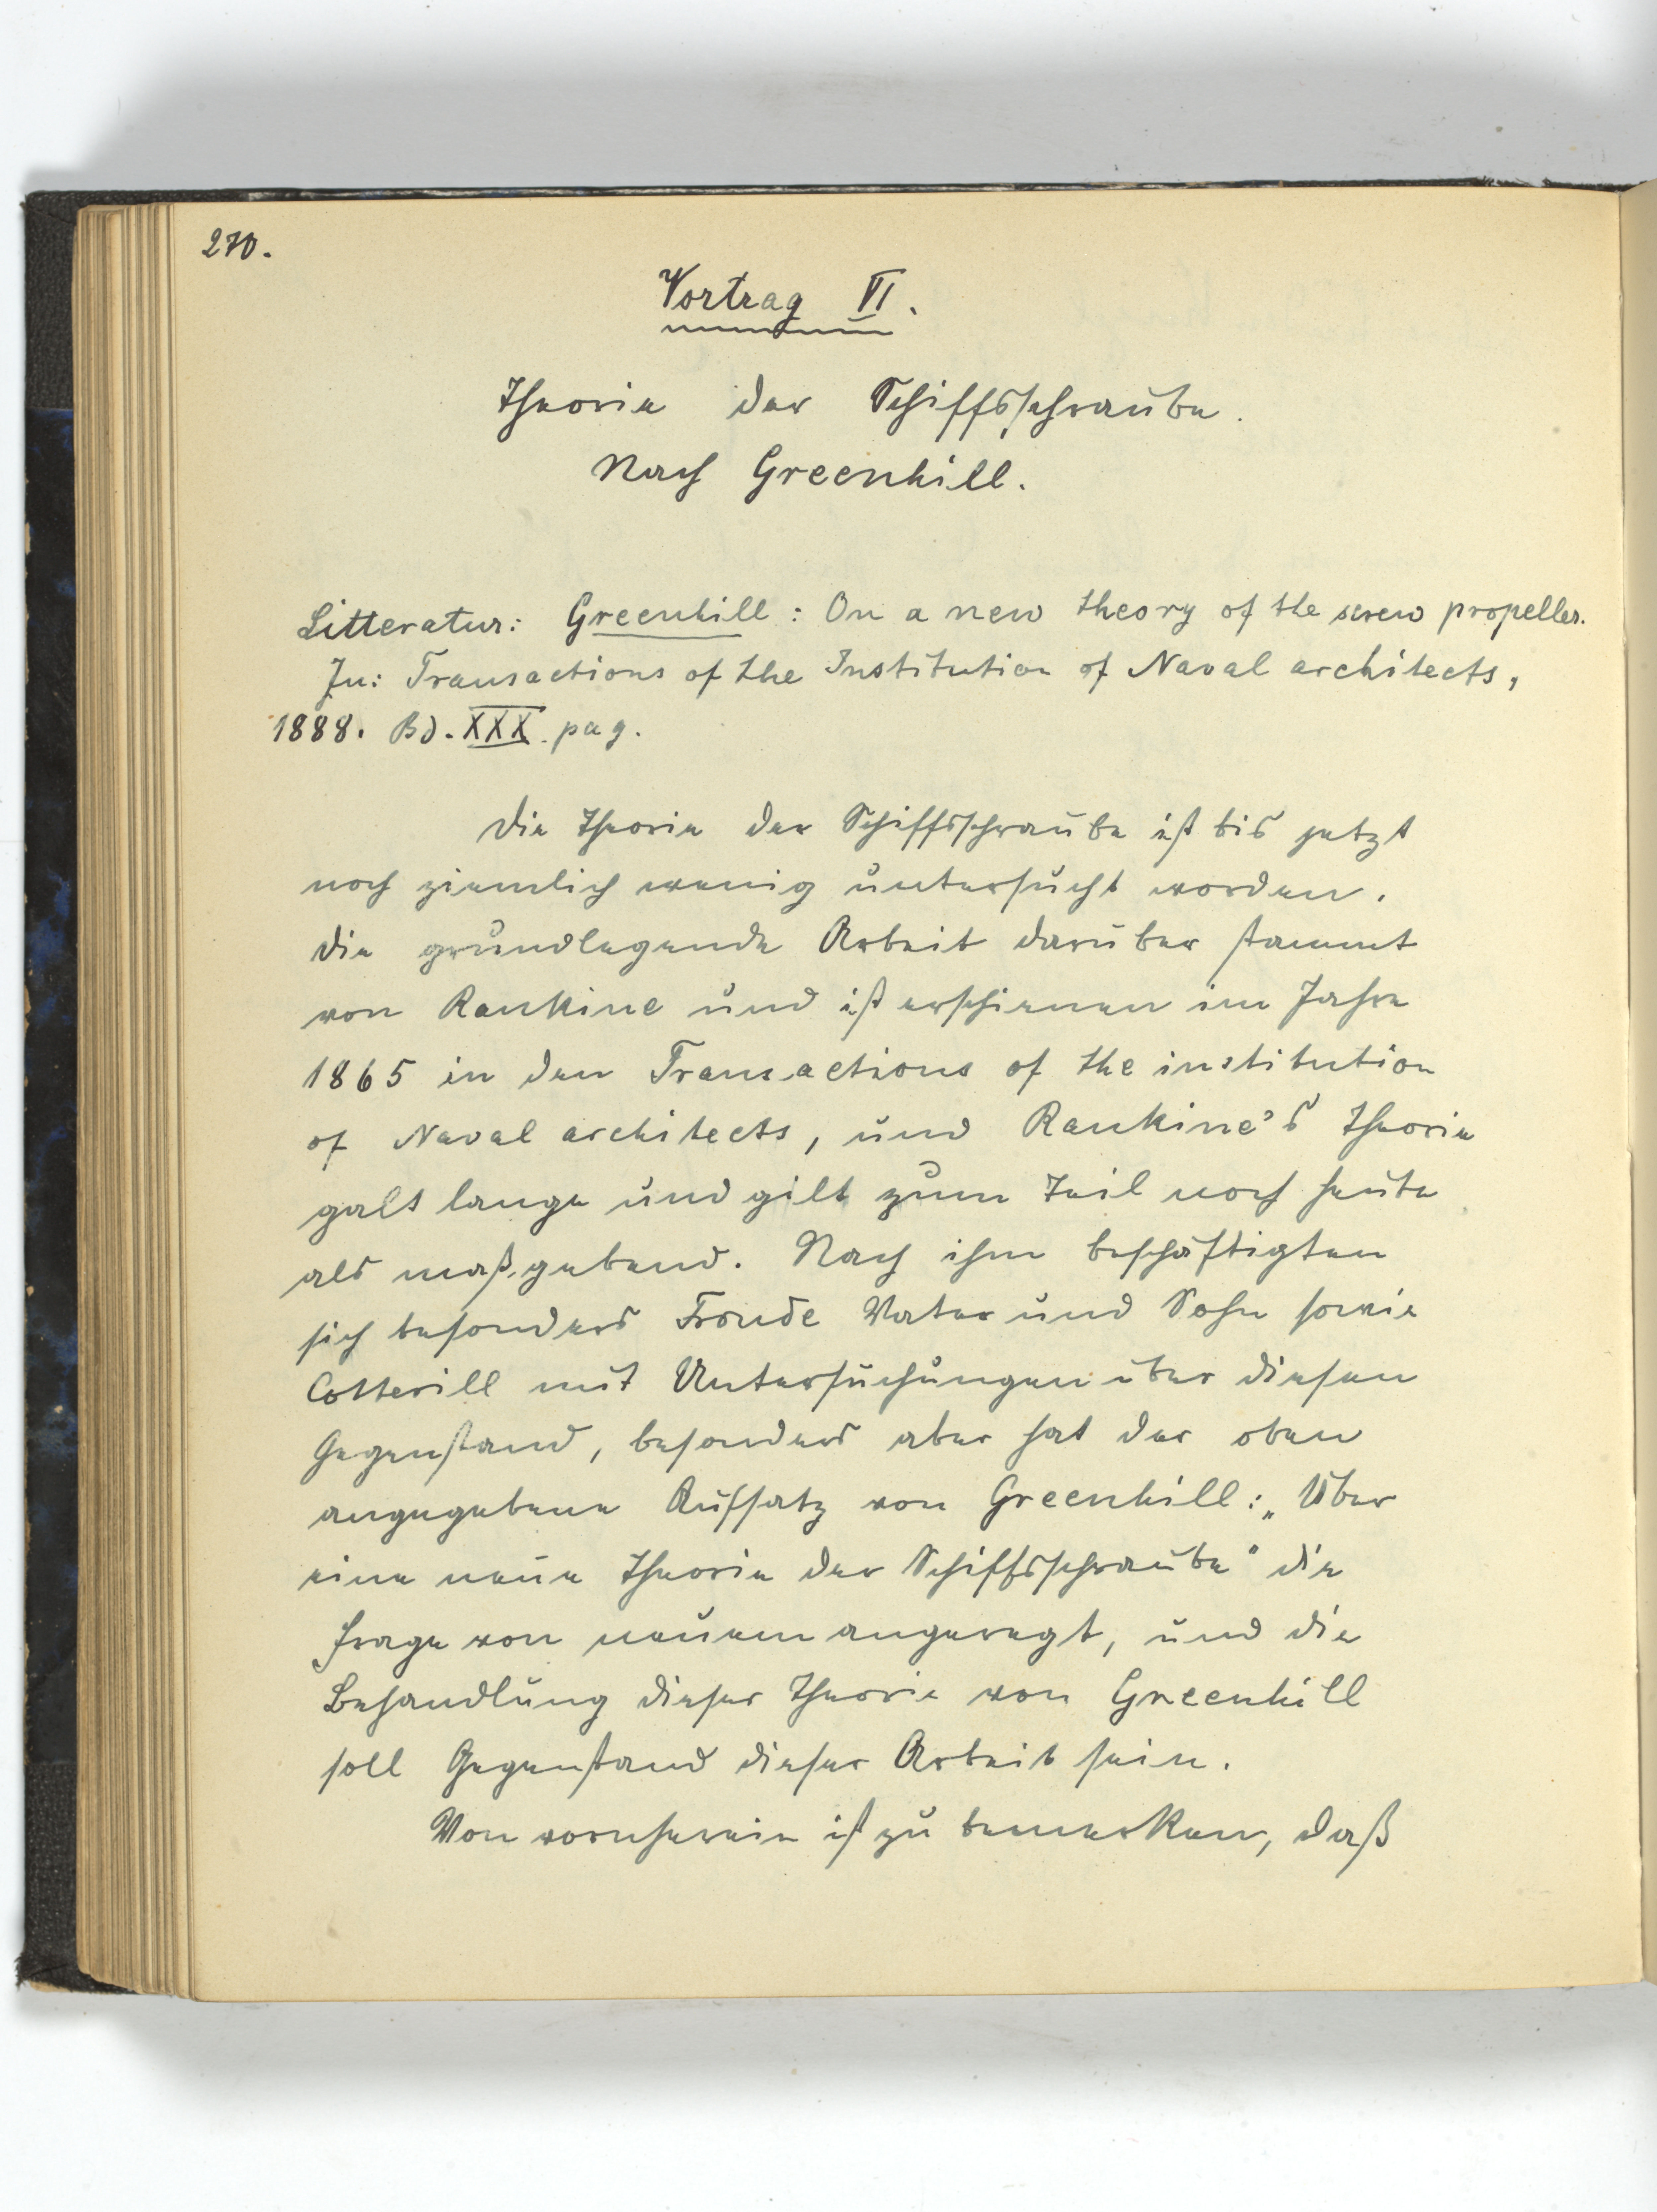 270.
Vortrag VI.
Theorie der Schiffsschraube.
Nach Greenhill.
Litteratur: Greenhill: On a new theory of the screw propeller.
In: Transactions of the Institution of Naval architects,
1888. Bd. XXX. pag.
Die Theorie der Schiffsschraube ist bis jetzt
noch ziemlich wenig untersucht worden.
Die grundlegende Arbeit darüber stammt
von Rankine und ist erschienen im Jahre
1865 in den Transactions of the institution
of Naval architects, und Rankine's Theorie
galt lange und gilt zum Teil noch heute
als maßgebend. Nach ihm beschäftigten
sich besonders Froude Vater und Sohn sowie
Cotterill mit Untersuchungen über diesen
Gegenstand, besonders aber hat der oben
angegebene Aufsatz von Greenhill: „Über
eine neue Theorie der Schiffsschraube" die
Frage von neuem angeregt, und die
Behandlung dieser Theorie von Greenhill
soll Gegenstand dieser Arbeit sein.
Von vornherein ist zu bemerken, daß